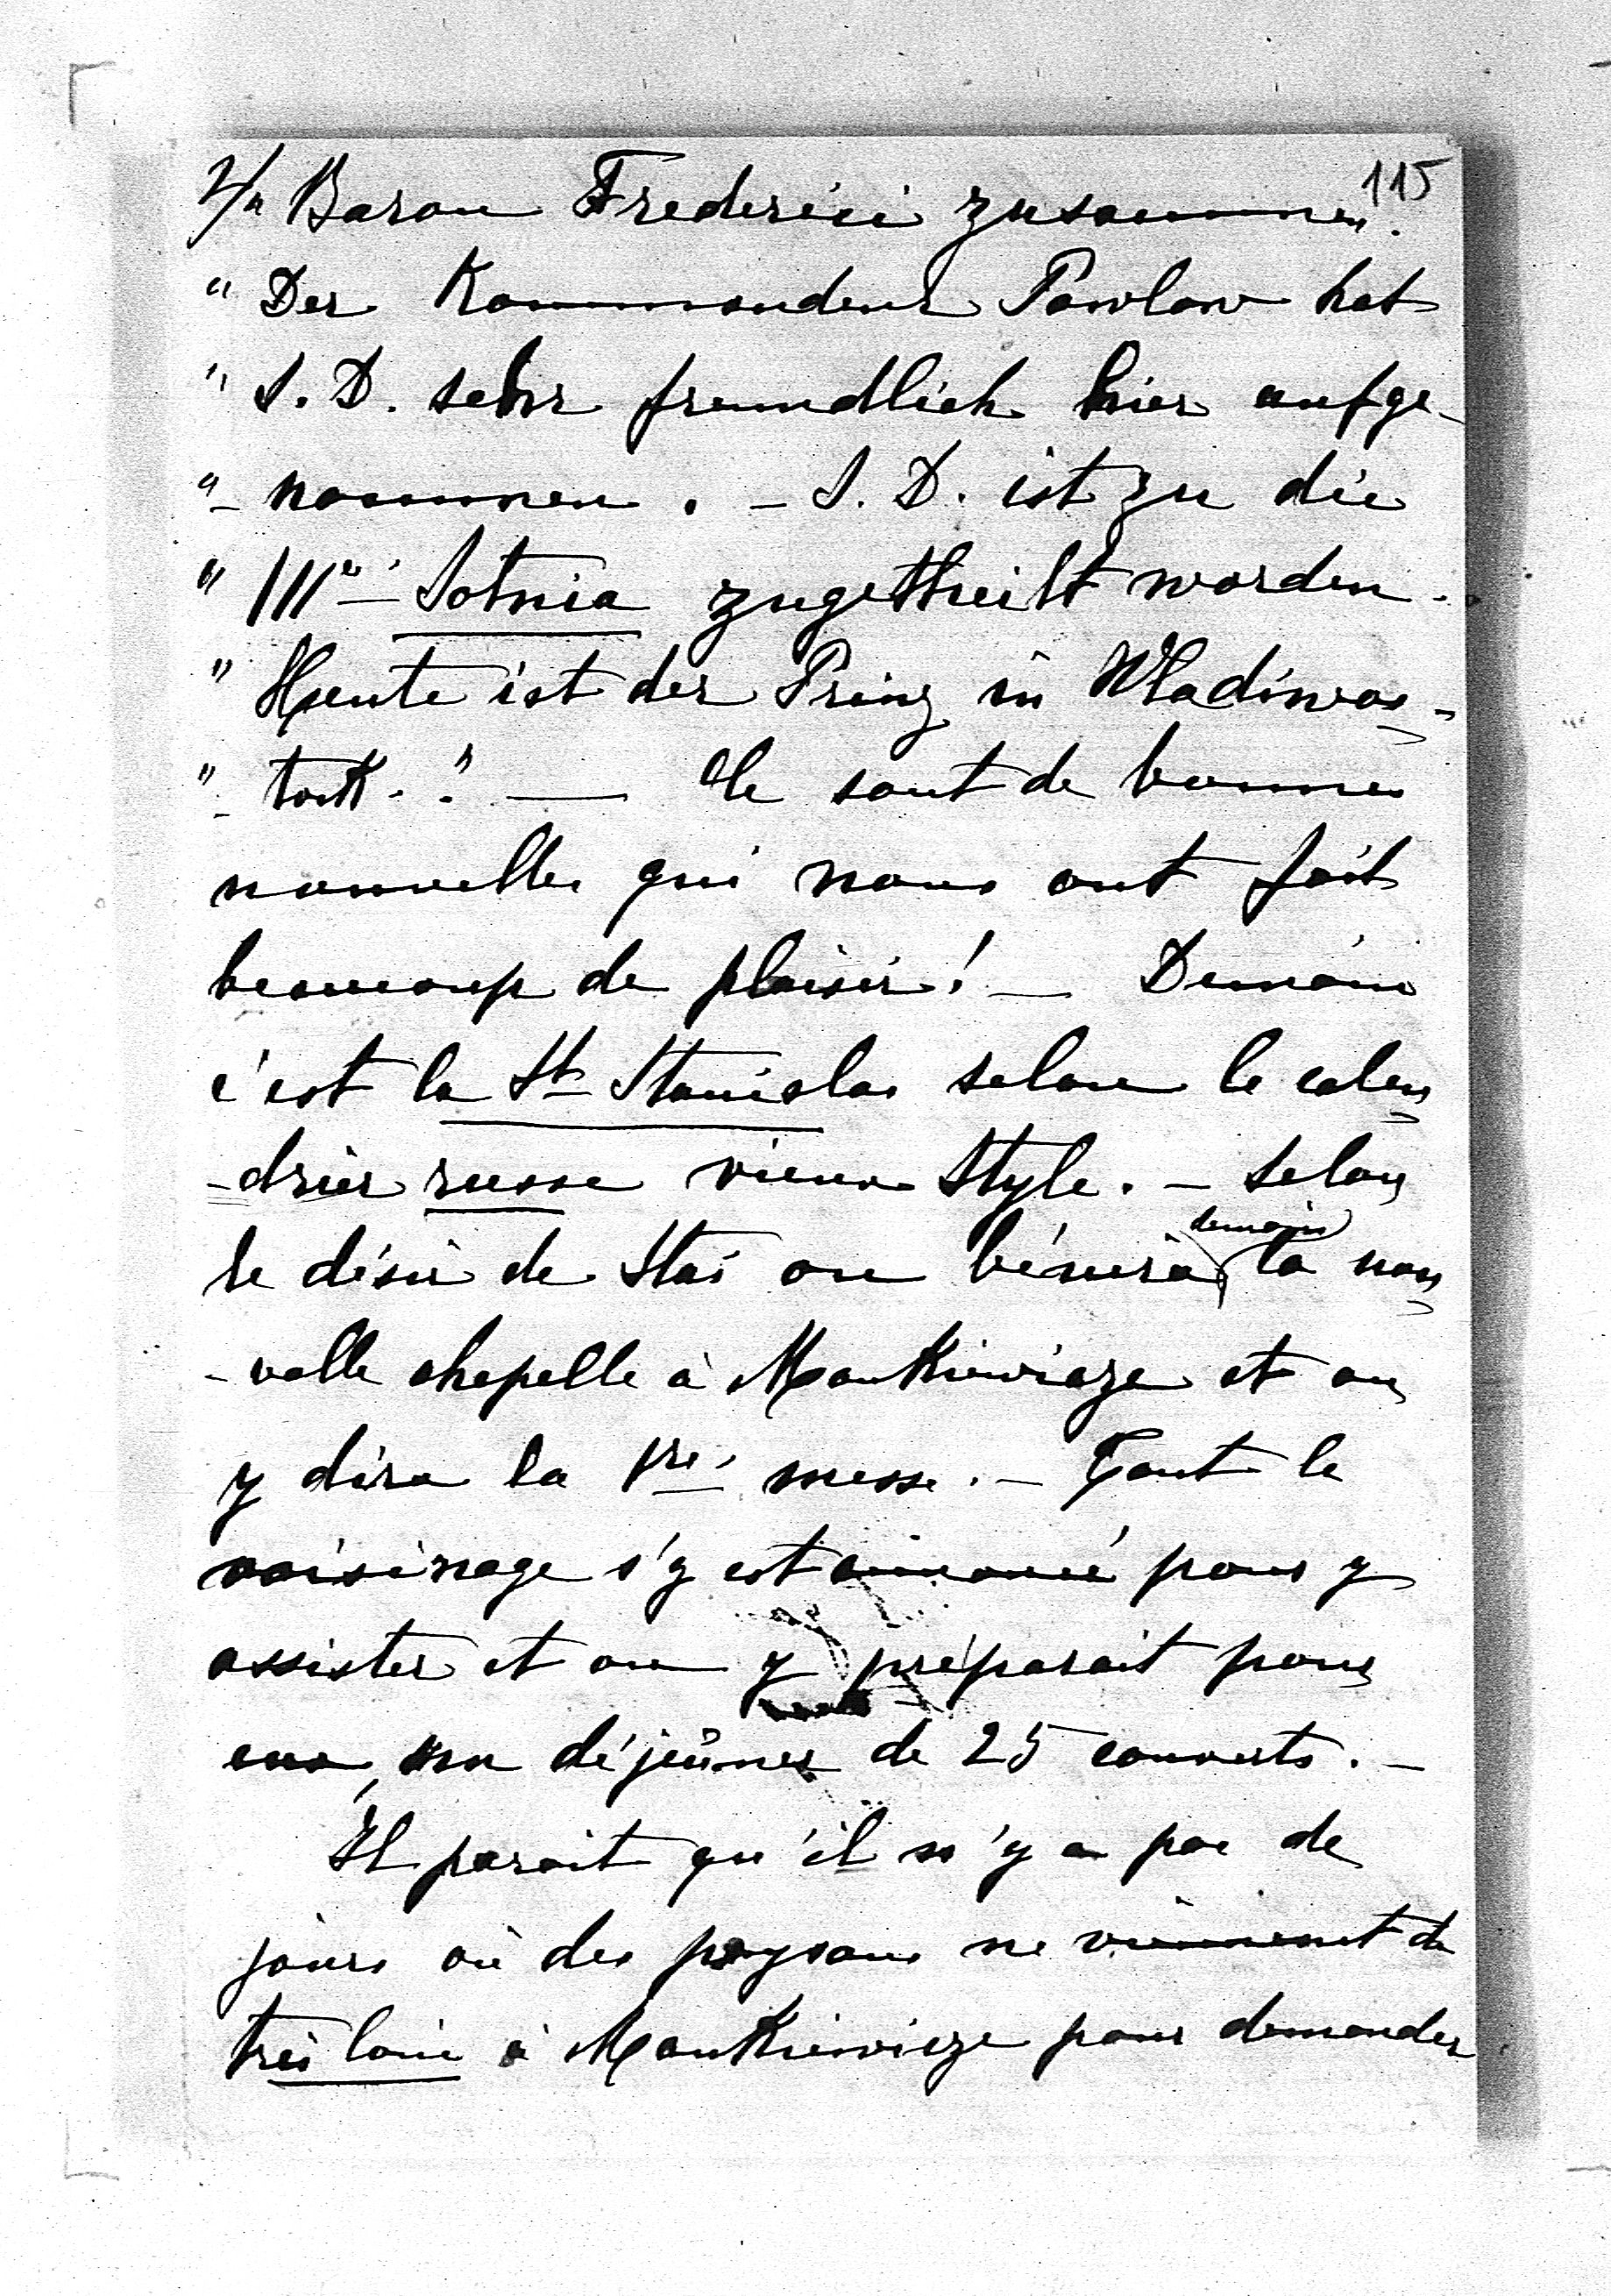 115
2/n Baron Frederici zusammen.
" Der Kommandeur Pawlow hat
" S. D. sehr freundlich hier aufge-
"- nommen. - S. D. ist zu die
" IIIe Sotnia zugetheilt worden.
" Heute ist der Prinz in Wladiwos-
"- tock." — Ce sont de bonnes
nouvelles qui nous ont fait
beaucoup de plaisir! — Demain
c'est la St Stanislas selon le calen
-drier russe vieux Style. - Selon
demain
le désir de Stas on bénira la nou
-velle chapelle à Mankiewicze et on
y dira la 1re messe. - Tout le
voisinage s'y est annoncé pour y
assister et on y préparait pour
eux, un déjeûner de 25 couverts. -
Il parait qu'il n'y a pas de
jours où des paysans ne viennent de
très loin à Mankiewicze pour demander